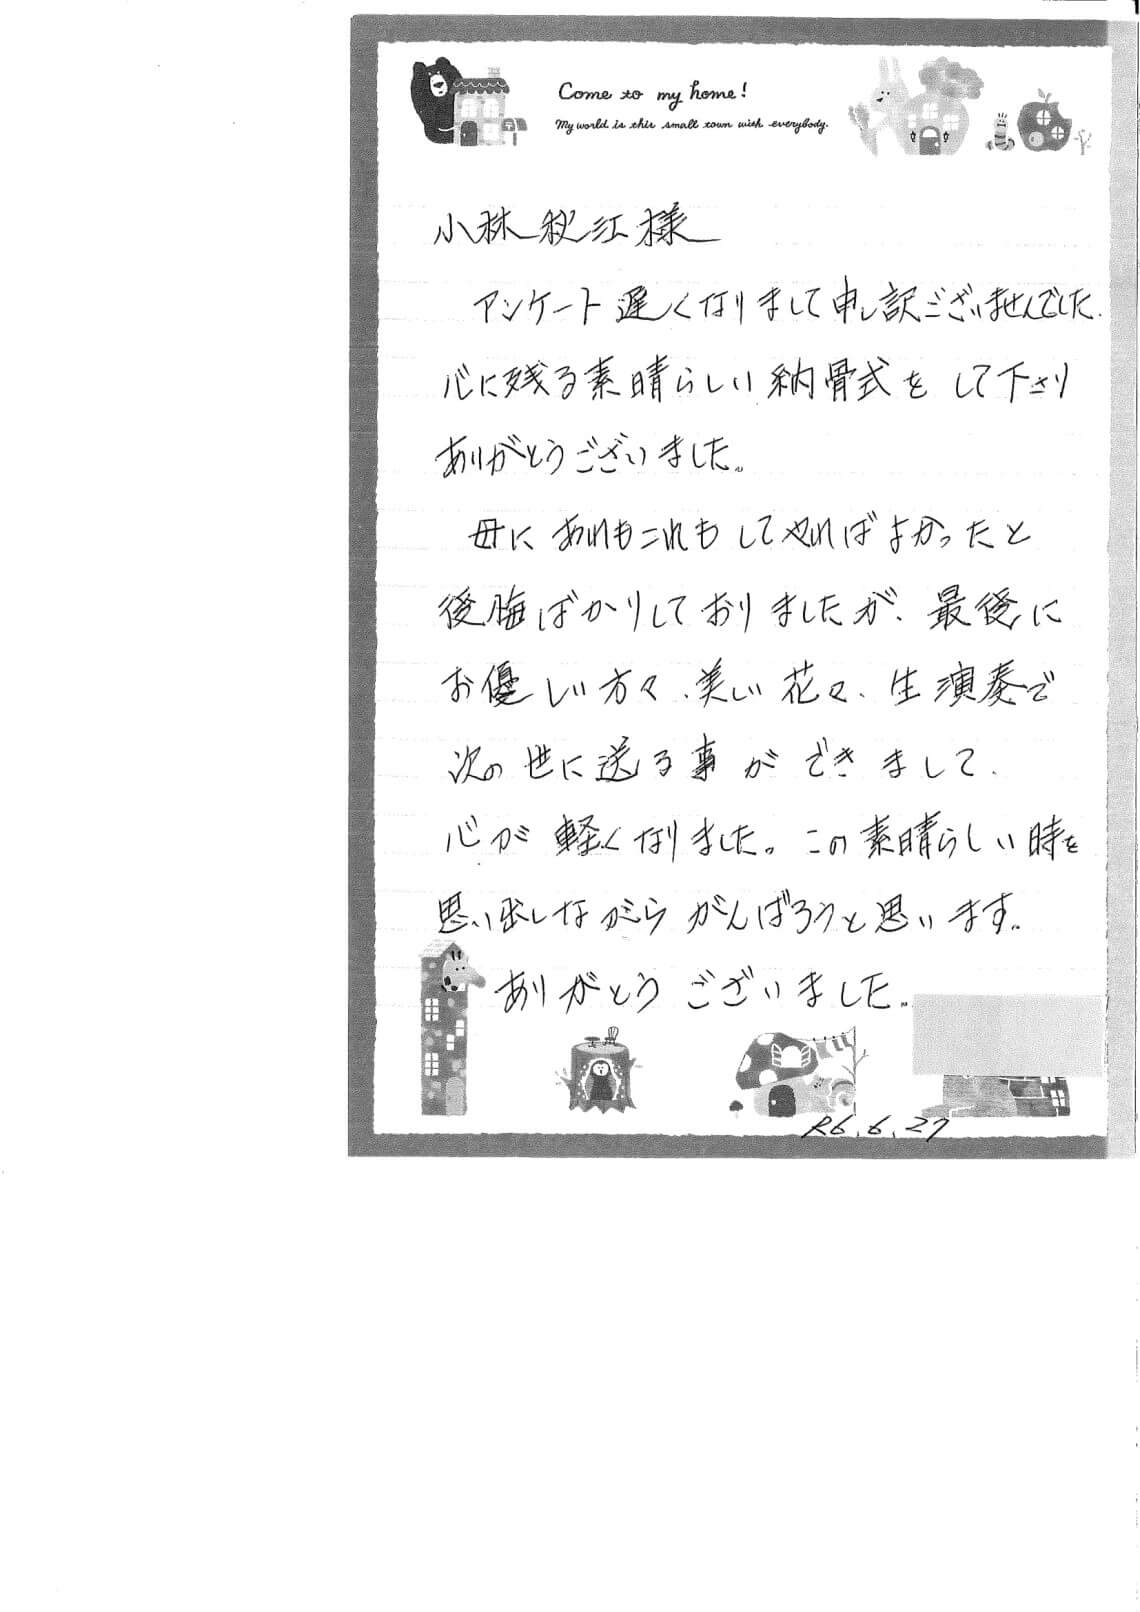 Come to my home!
My world is this small town with everybody.
小林秋江様
アンケート遅くなりまして申し訳ございませんでした.
心に残る素晴らしい納骨式をして下さり
ありがとうございました。
母にあれもこれもしてやればよかったと
後悔ばかりしておりましたが、最後に
お優しい方々、美しい花々、生演奏で
次の世に送る事ができまして、
心が軽くなりました。この素晴らしい時を
思い出しながらがんばろうと思います。
ありがとうございました。
R6.6.27